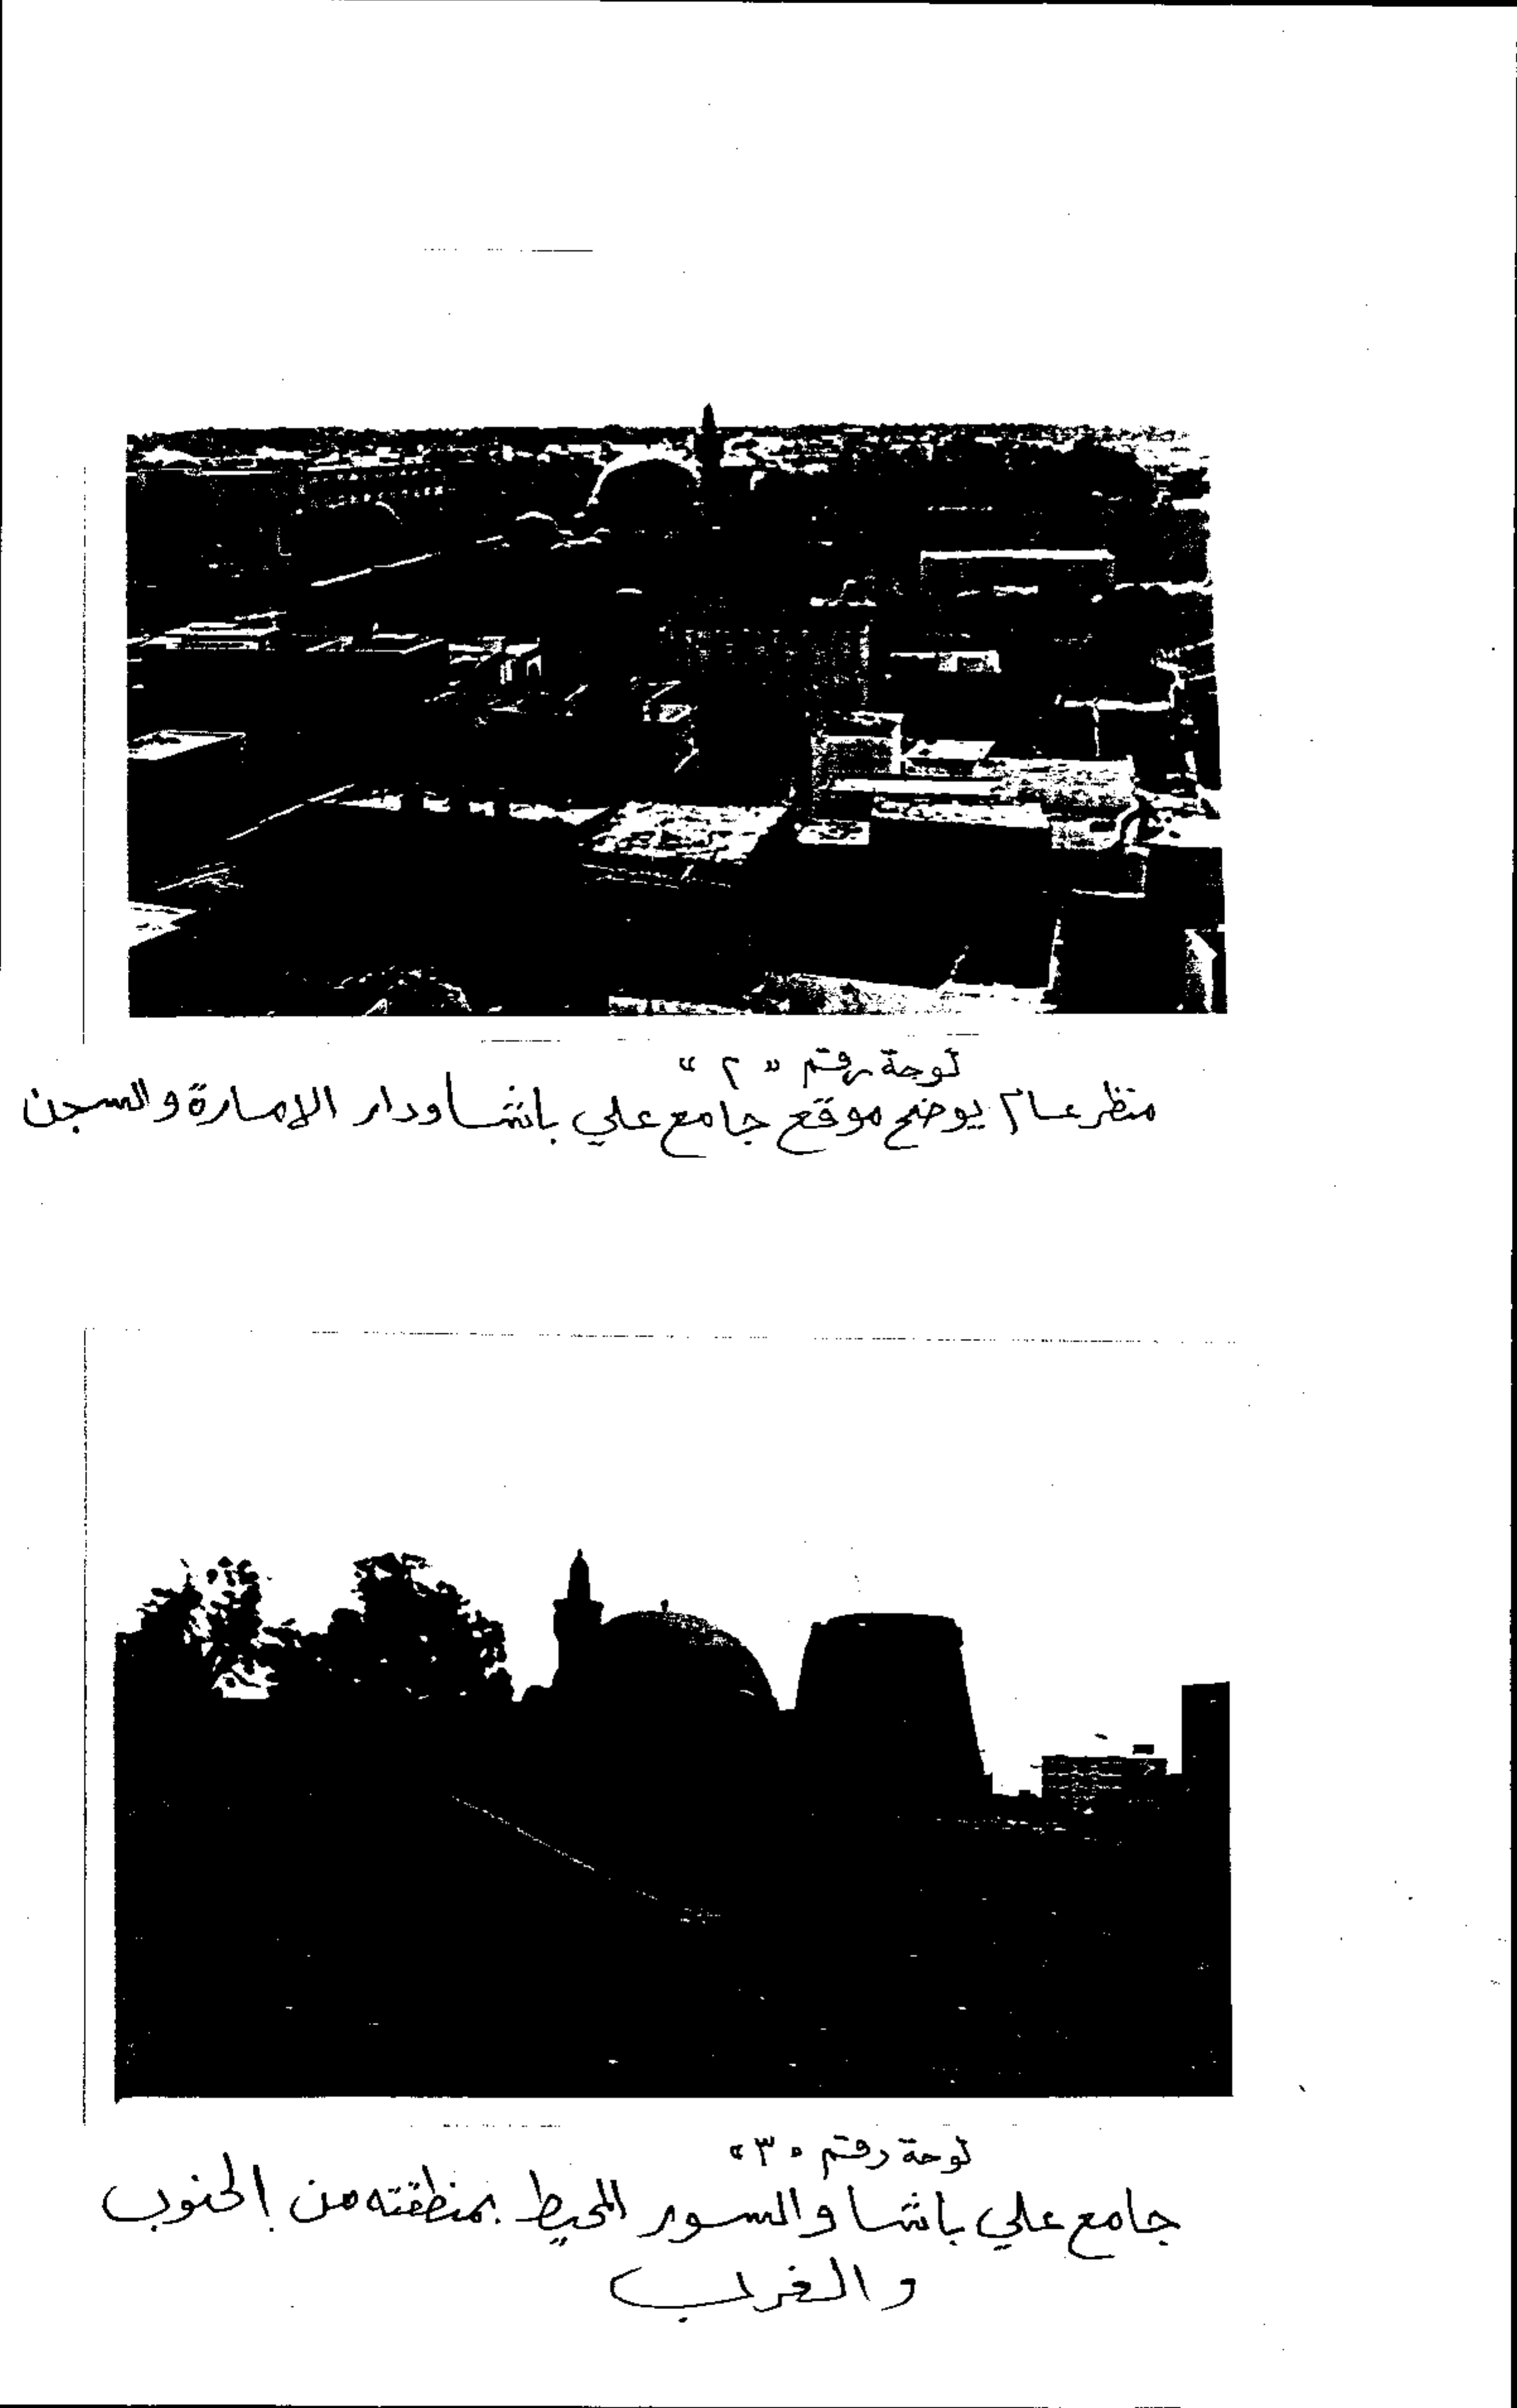 لوحة رقم «٢»
منظر عام يوضح موقع جامع علي باشا ودار الإمارة والسجن
لوحة رقم «٣»
جامع علي باشا والسور المحيط بمنطقته من الجنوب
والغرب